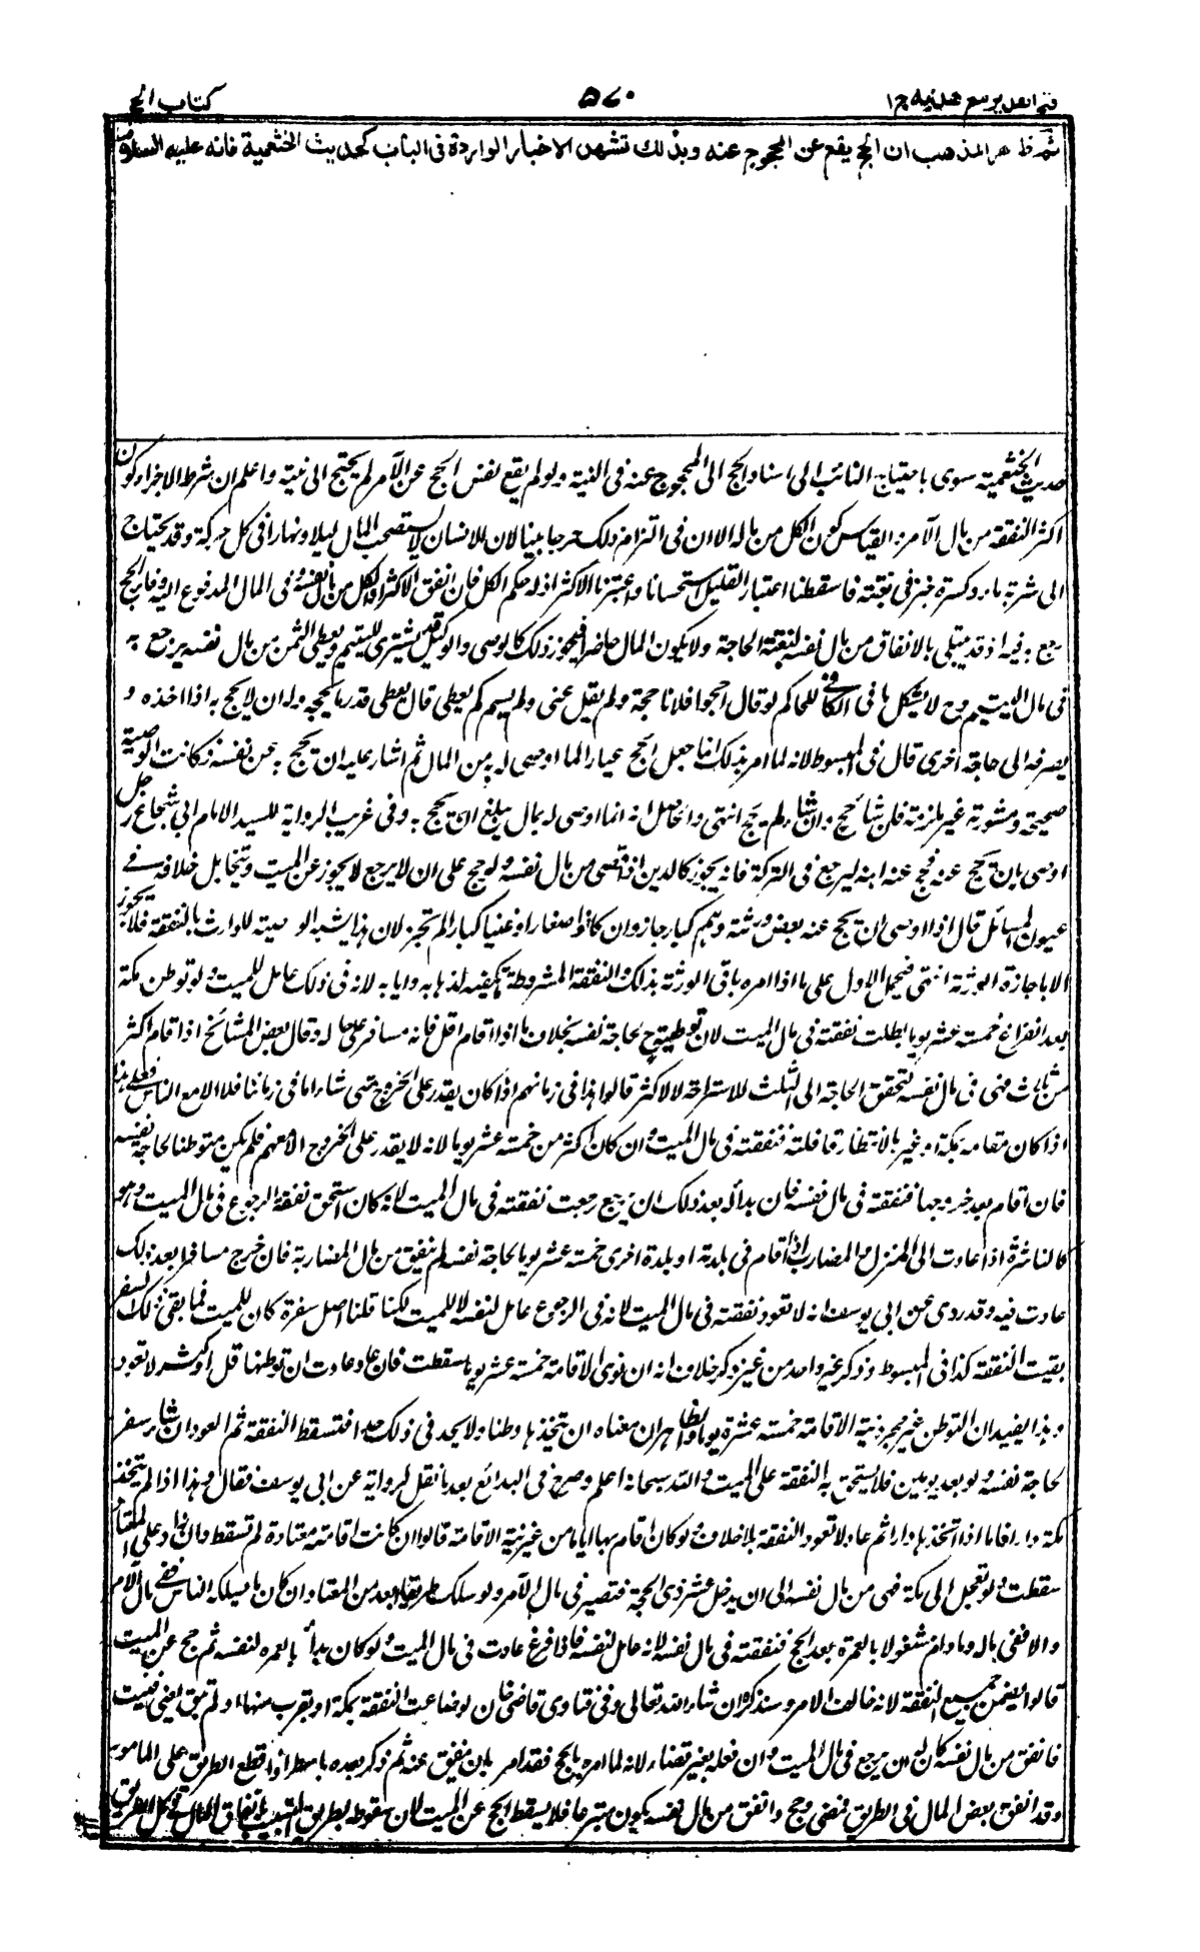 فتح القدير مع هدايه ج ١
٥٧٠
كتاب الحج
ثم ظاهر المذهب ان الحج يقع عن المحجوج عنه وبذلك تشهد الاخبار الواردة فى الباب كحديث الخثعمية فانه عليه السلام
حديث الخثعمية سوى باحتياج النائب الى اسناد الحج الى المحجوج عنه فى النية ولو لم يقع نفس الحج عن الآمر لم يحتج الى نيته واعلم ان شرط الاجزاء كون
اكثر النفقة من مال الآمر والقياس كون الكل من ماله الا ان فى التزام ذلك حرجا بينا لان الانسان لا يستصحب المال ليلا ونهارا فى كل حركة وقد يحتاج
الى شربة ماء وكسرة خبز فى بقعة فاسقطنا اعتبار القليل استحسانا واعتبرنا الاكثر اذ له حكم الكل فان انفق الاكثر او الكل من مال نفسه وفى المال المدفوع اليه وفاء بالحج
رجع به فيه اذ قد يبتلى بالانفاق من مال نفسه لبغتة الحاجة ولا يكون المال حاضرا فيجوز ذلك كالوصى والوكيل يشترى لليتيم ويعطى الثمن من مال نفسه يرجع به
فى مال اليتيم وح لا يشكل ما فى الكافى للحاكم لو قال احجوا فلانا حجة ولم يقل عنى ولم يسم كم يعطى قال يعطى قدر ما يحج به وله ان لا يحج به اذا اخذه و
يصرفه الى حاجة اخرى قال فى المبسوط لانه لما امر بذلك انما جعل الحج عيارا لما اوصى له به من المال ثم اشار عليه ان يحج به عن نفسه فكانت الوصية
صحيحة ومشورته غير ملزمة فان شاء حج وان شاء لم يحج انتهى والحاصل انه انما اوصى له بمال يبلغ ان يحج به وفى غريب الرواية للسيد الامام ابى شجاع رجل
اوصى بان يحج عنه فحج عنه ابنه ليرجع فى التركة فانه يجوز كالدين اذا قضى من مال نفسه ولو حج على ان لا يرجع لا يجوز عن الميت ويتخايل خلافه فى
عيون المسائل قال اذا اوصى ان يحج عنه بعض ورثته وهم كبار جاز وان كانوا صغارا او غنيا كبارا لم تجز لان هذا يشبه الوصية للوارث بالنفقة فلا يجوز
الا باجازة الورثة انتهى فيحمل الاول على ما اذا امره باقى الورثة بذلك والنفقة المشروطة تكفيه لذهابه وايابه لانه فى ذلك عامل للميت ولو توطن مكة
بعد الفراغ خمسة عشر يوما بطلت نفقته فى مال الميت لان توطينه ح لحاجة نفسه بخلاف ما اذا اقام اقل فانه مسافر على حاله وقال بعض المشائخ اذا قام اكثر
من ثلث فهى فى مال نفسه لتحقق الحاجة الى الثلث للاستراحة لا لاكثر قالوا هذا فى زمانهم اذ كان يقدر على الخروج متى شاء اما فى زماننا فلا الا مع الناس فعلى هذا
اذا كان مقامه بمكة او غيرها لانتظار قافلته فنفقته فى مال الميت وان كان اكثر من خمسة عشر يوما لانه لا يقدر على الخروج الا معهم فلم يكن متوطنا لحاجة نفسه
فان اقام بعد خروجها فنفقته فى مال نفسه فان بدا له بعد ذلك ان يرجع رجعت نفقته فى مال الميت لانه كان استحق نفقة الرجوع فى مال الميت وهو
كالناشزة اذا عادت الى المنزل والمضارب اذا اقام فى بلدته او بلدة اخرى خمسة عشر يوما لحاجة نفسه لم ينفق من مال المضاربة فان خرج مسافرا بعد ذلك
عادت فيه وقد روى عن ابى يوسف انه لا تعود نفقته فى مال الميت لانه فى الرجوع عامل لنفسه لا للميت لكنا قلنا اصل سفره كان للميت فما بقى ذلك السفر
بقيت النفقة كذا فى المبسوط وذكر غير واحد من غير ذكر خلاف انه ان نوى الاقامة خمسة عشر يوما سقطت فان عاد عادت ان توطنها قل او كثر لا تعود
وهذا يفيد ان التوطن غير مجرد نية الاقامة خمسة عشر يوما والظاهر ان معناه ان يتخذها وطنا ولا يحد فى ذلك حدا فتسقط النفقة ثم العود ان شاء سفر
لحاجة نفسه ولو بعد يومين فلا يستحق به النفقة على الميت والله سبحانه اعلم وصرح فى البدائع بعد ما نقل رواية عن ابى يوسف فقال وهذا اذا لم يتخذ
مكة دارا فاما اذا اتخذها دارا ثم عاد لا تعود النفقة بلا خلاف ولو كان اقام بها اياما من غير نية الاقامة قالوا ان كانت اقامته معتادة لم تسقط وان زاد على المعتاد
سقطت ولو تعجل الى مكة فهى من مال نفسه الى ان يدخل عشر ذى الحجة فتصير فى مال الآمر ولو سلك طريقا ابعد من المعتاد ان كان ما يسلكه الناس ففى مال الآمر
والا ففى ماله وما دام مشغولا بالعمرة بعد الحج فنفقته فى مال نفسه لانه عامل لنفسه فاذا فرغ عادت فى مال الميت ولو كان بدأ بالعمرة لنفسه ثم حج عن الميت
قالوا يضمن جميع النفقة لانه خالف الامر وسنذكره ان شاء الله تعالى وفى فتاوى قاضى خان لو ضاعت النفقة بمكة او بقرب منها او لم تبق اى فنيت
فانفق من مال نفسه كان له ان يرجع فى مال الميت وان فعله بغير قضاء لانه لما امره بالحج فقد امر بان ينفق عنه ثم ذكر بعده باسطر اذا قطع الطريق على المامور
وقد انفق بعض المال فى الطريق فمضى وحج وانفق من مال نفسه يكون متبرعا فلا يسقط الحج عن الميت لان سقوطه بطريق التسبيب بانفاق المال فى كل الطريق